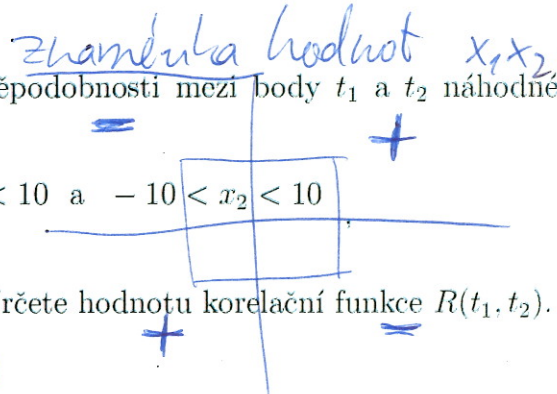 znaménka hodnot x₁x₂
ěpodobnosti mezi body t₁ a t₂ náhodné
= +
< 10 a − 10 < x₂ < 10
určete hodnotu korelační funkce R(t₁, t₂).
+ =